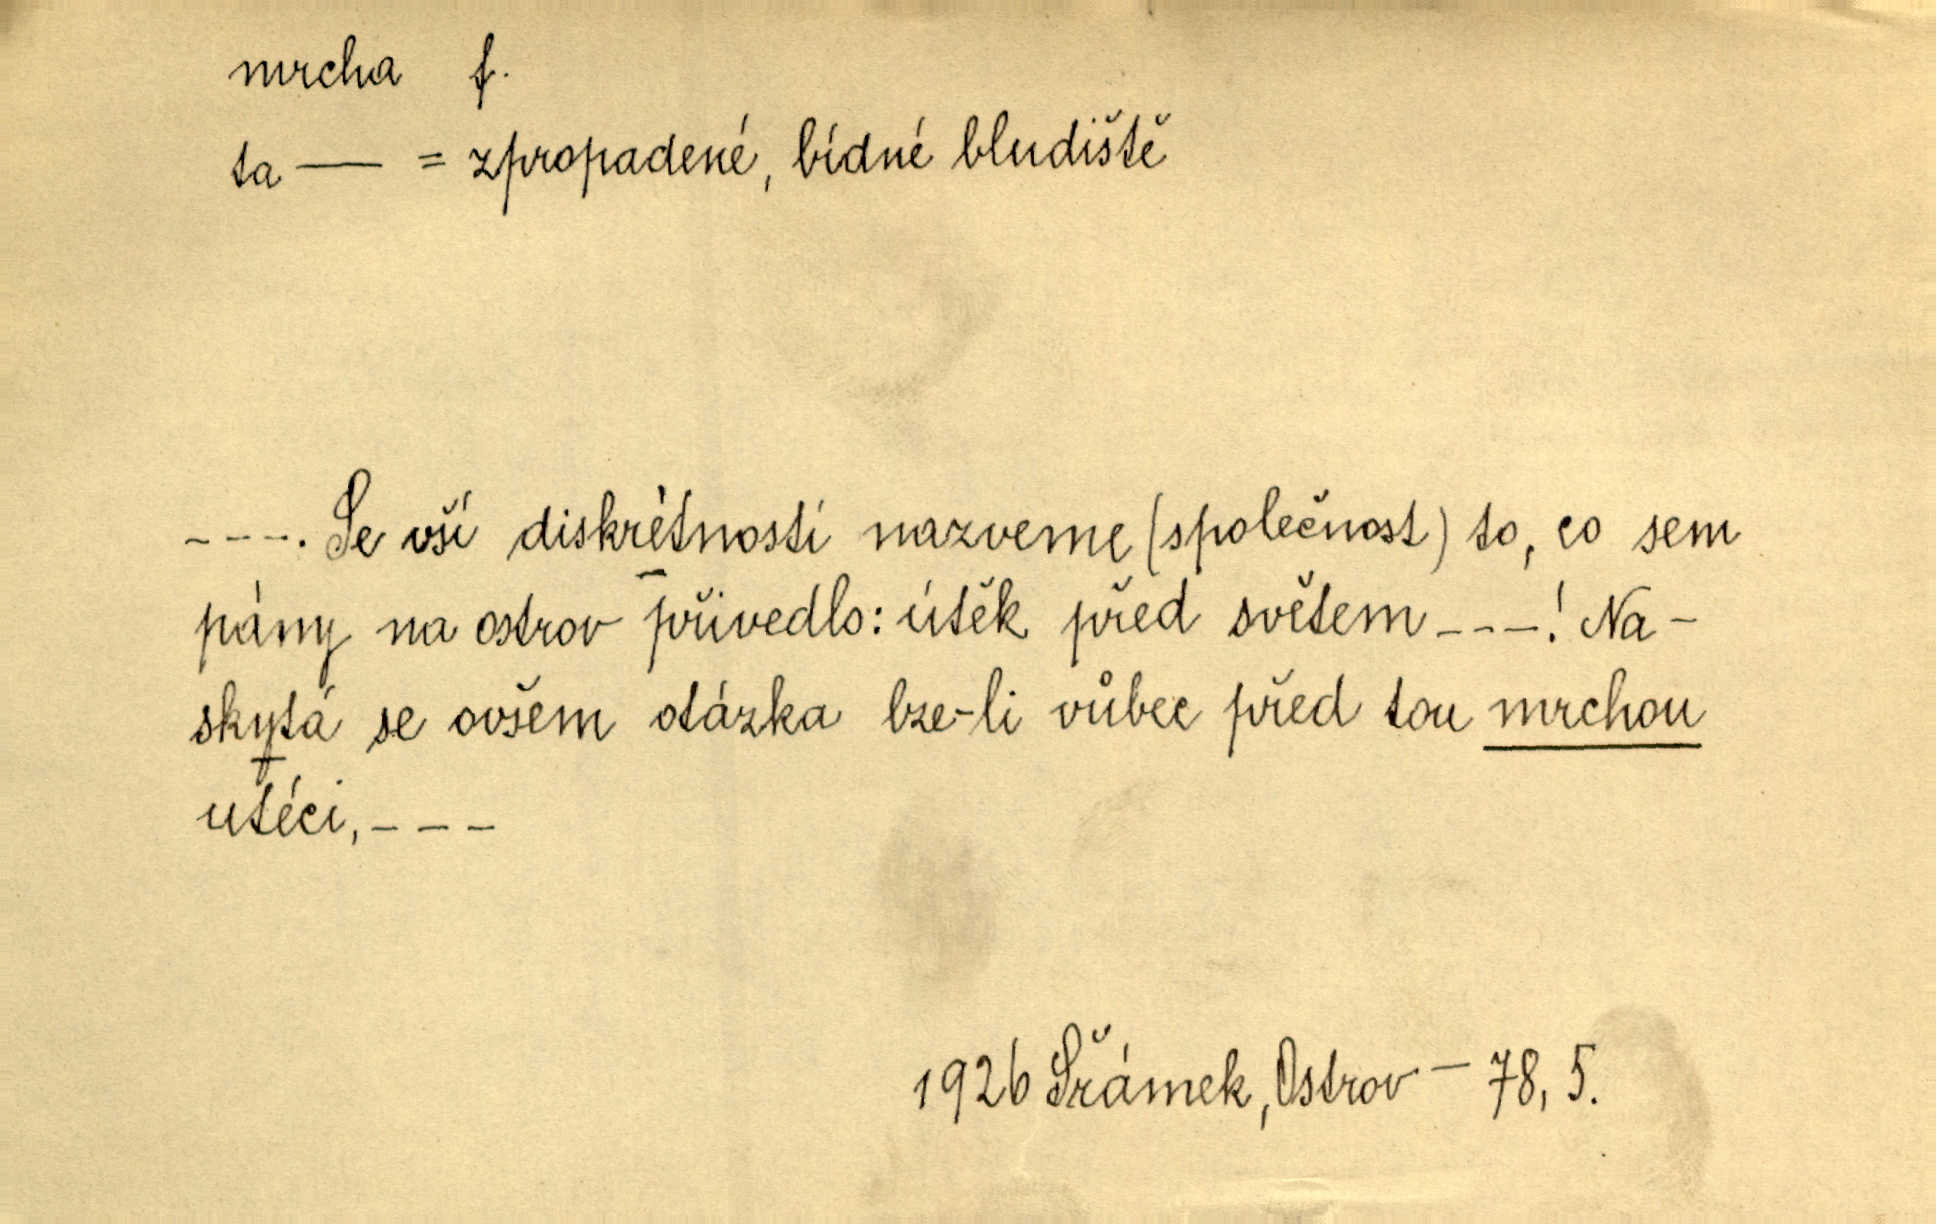 mrcha f.
ta — = zpropadené, bídné bludiště
---. Se vší diskrétností nazveme (společnost) to, co sem
pány na ostrov přivedlo: útěk před světem ---! Na-
skytá se ovšem otázka lze-li vůbec před tou mrchou
utéci, ---
1926 Šrámek, Ostrov — 78, 5.